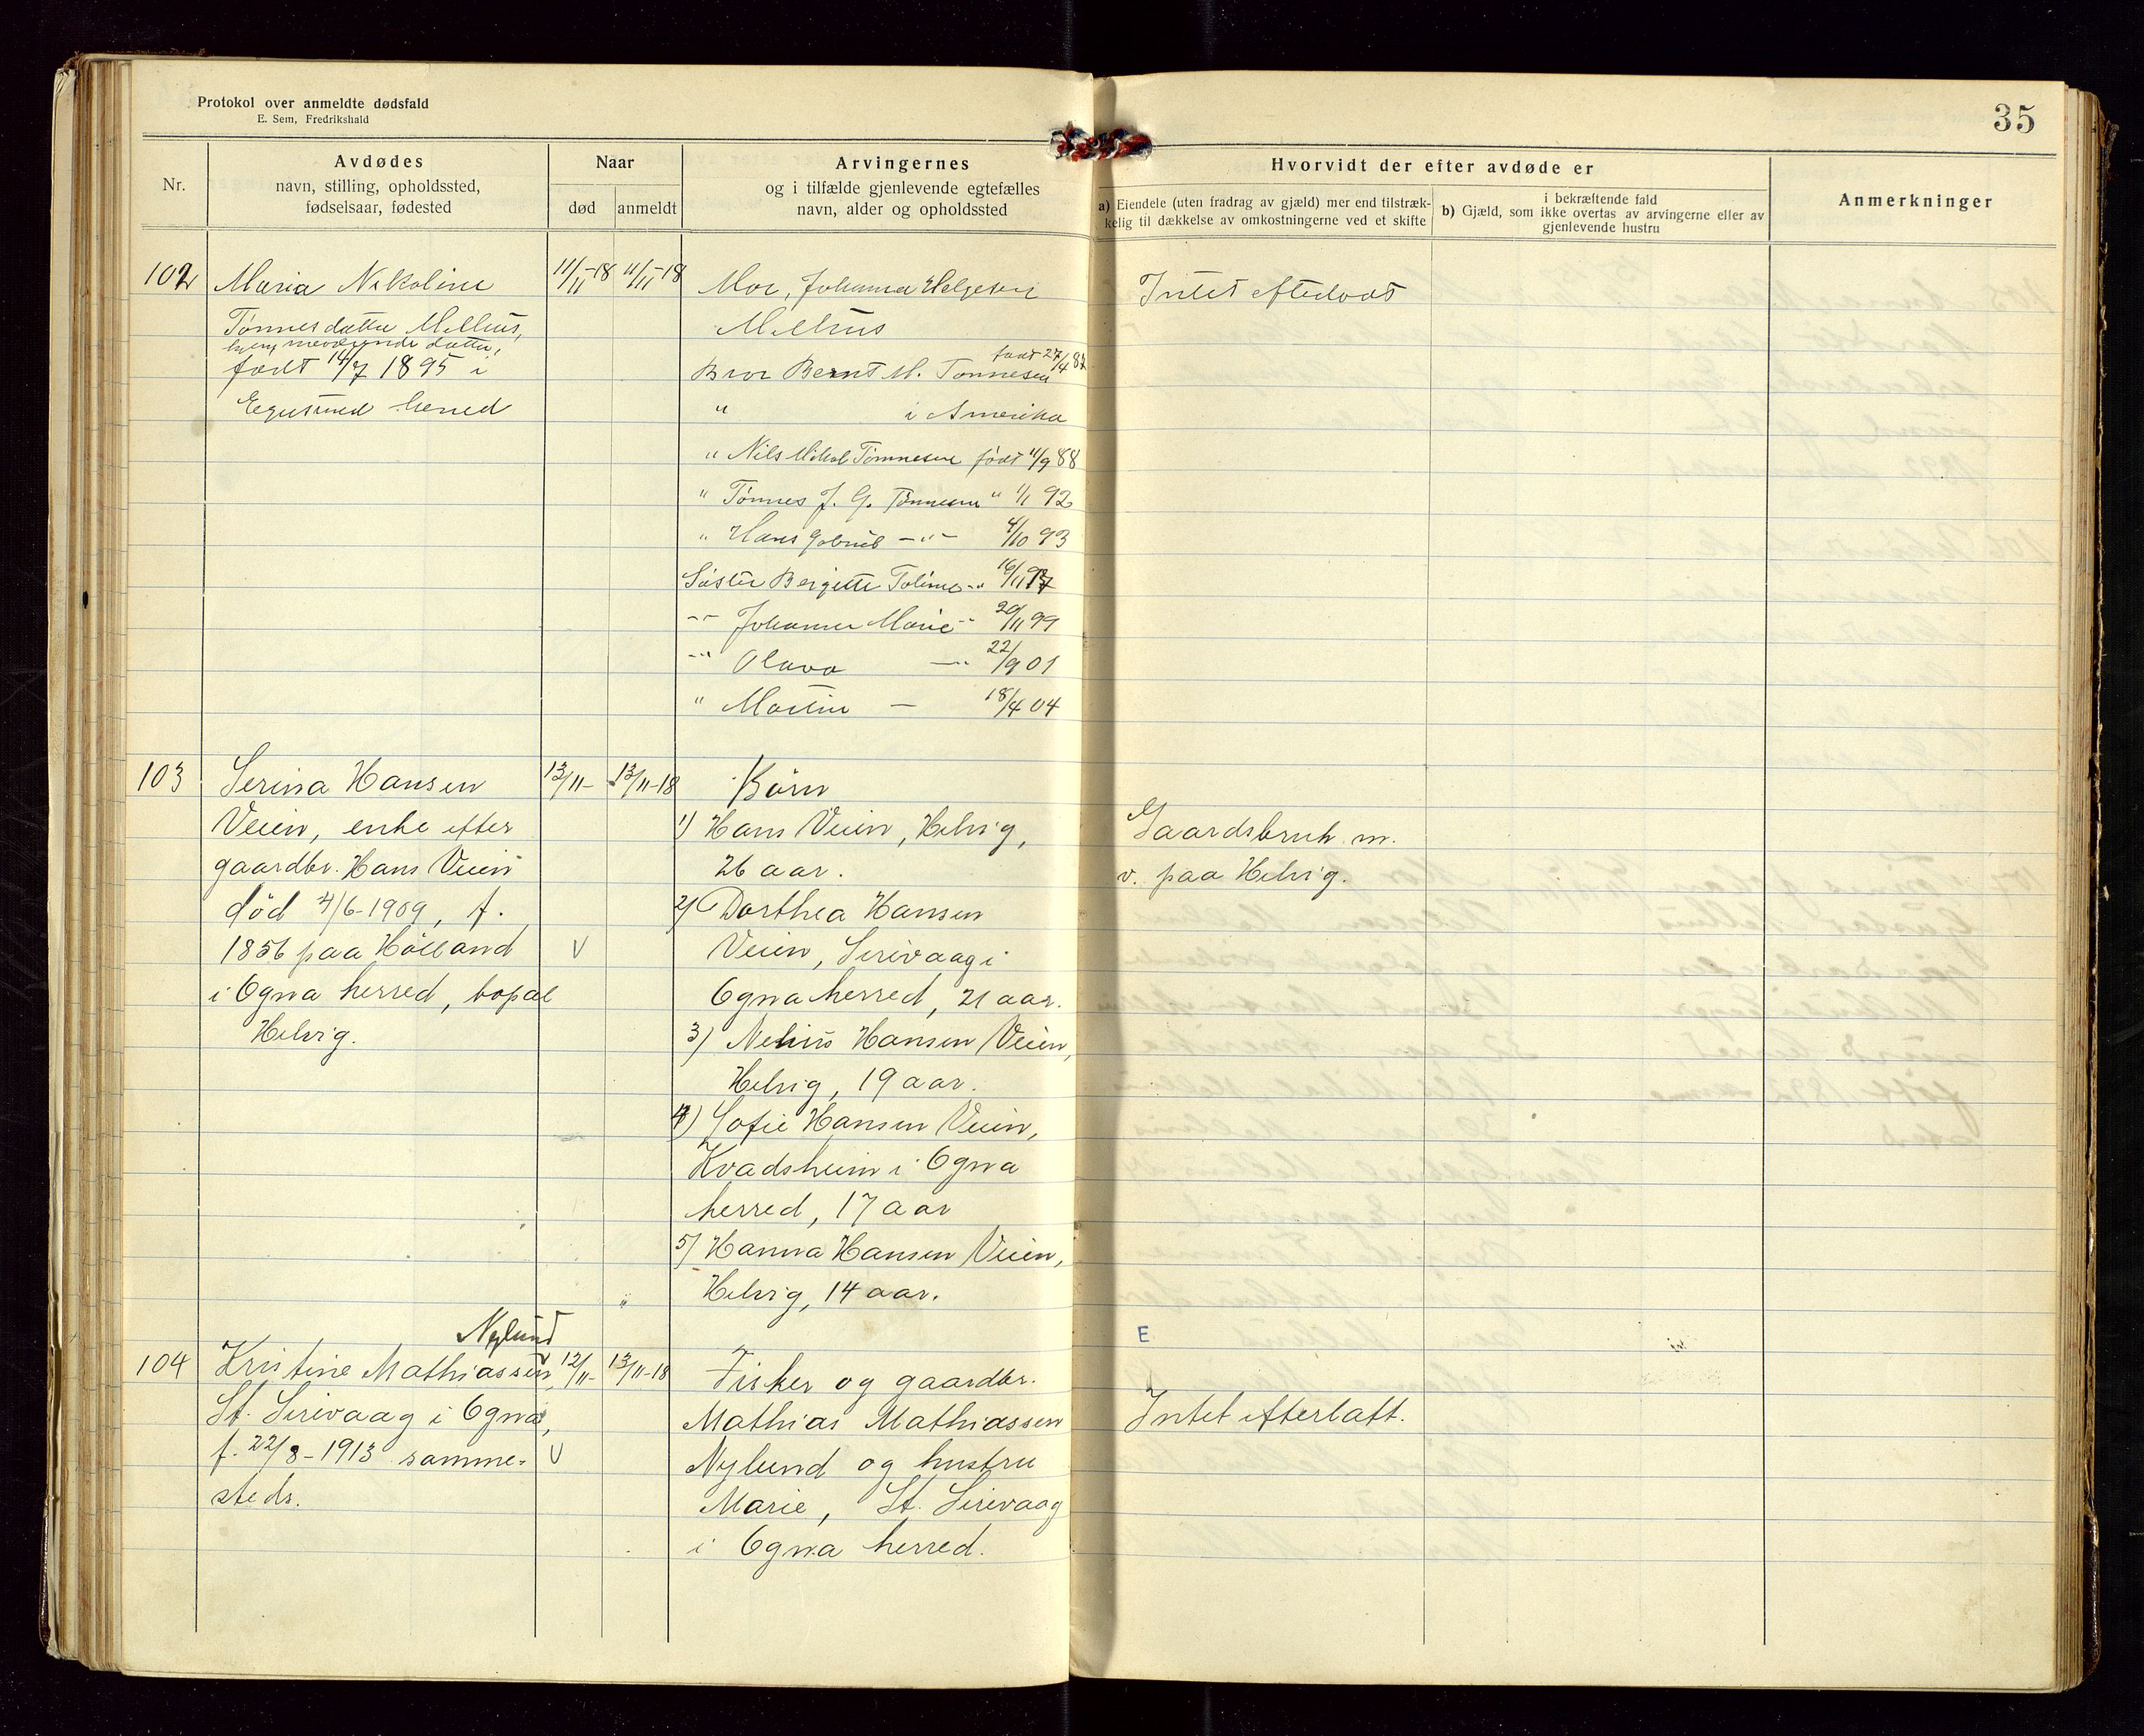 Protokol over anmeldte dødsfald
E. Sem, Fredrikshald
35
Nr.
Avdødes
navn, stilling, opholdssted,
fødselsaar, fødested
Naar
død
anmeldt
Arvingernes
og i tilfælde gjenlevende egtefælles
navn, alder og opholdssted
Hvorvidt der efter avdøde er
a) Eiendele (uten fradrag av gjæld) mer end tilstræk-
kelig til dækkelse av omkostningerne ved et skifte
i bekræftende fald
b) Gjæld, som ikke overtas av arvingerne eller av
gjenlevende hustru
Anmerkninger
102
Maria Nikoline
Tønnesdatter Mellus,
hjemmeværende datter,
født 14/7 1895 i
Egersund herred
11/11-18
11/11-18
Mor, Johanna Helgesen
Mellus
født 27/4 87
Bror Bernt M. Tønnesen
" i Amerika
" Nils Mikal Tønnesen født 11/9 88
" Tønnes J. G. Tønnesen " 1/1 92
" Hans Gabriel -"- 4/10 93
Søster Bergette Toline -" 16/11 97
-"- Johanne Marie -" 20/11 99
-"- Olava -"- 22/9 01
" Martin - 18/4 04
Intet efterladt
103
Serina Hansen
Veien, enke efter
gaardbr. Hans Veien
død 4/6-1909, f.
1856 paa Hölland
i Ogna herred, bopæl
Helvig.
13/11-
13/11-18
V
Børn
1) Hans Veien, Helvig,
26 aar.
2) Dorthea Hansen
Veien, Sirivaag i
Ogna herred, 21 aar.
3) Nelius Hansen Veien,
Helvig, 19 aar.
4) Sofie Hansen Veien,
Kvadsheim i Ogna
herred, 17 aar
5) Hanna Hansen Veien,
Helvig, 14 aar.
Gaardsbruk m.
v. paa Helvig.
104
Nylund
Kristine Mathiassen,
St. Sirivaag i Ogna,
f. 22/8-1913 samme-
steds.
12/11-
13/11-18
V
Fisker og gaardbr.
Mathias Mathiassen
Nylund og hustru
Marie, St. Sirevaag
i Ogna herred.
E
Intet efterlatt.